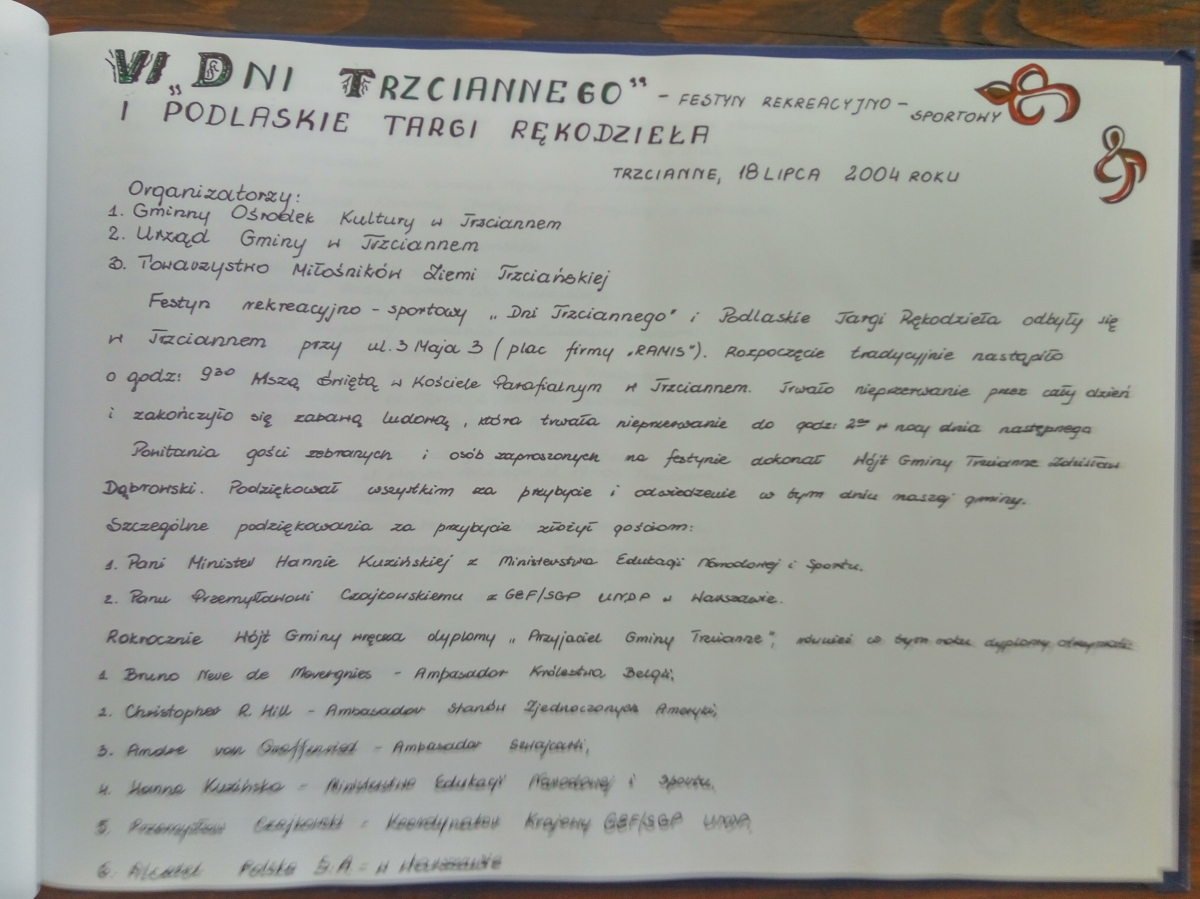 VI „DNI TRZCIANNEGO" - FESTYN REKREACYJNO - SPORTOWY
I PODLASKIE TARGI RĘKODZIEŁA
TRZCIANNE, 18 LIPCA 2004 ROKU
Organizatorzy:
1. Gminny Ośrodek Kultury w Trzciannem
2. Urząd Gminy w Trzciannem
3. Towarzystwo Miłośników Ziemi Trzciańskiej
Festyn rekreacyjno - sportowy „Dni Trzciannego" i Podlaskie Targi Rękodzieła odbyły się
w Trzciannem przy ul. 3 Maja 3 (plac firmy „RANIS"). Rozpoczęcie tradycyjnie nastąpiło
o godz: 9³⁰ Mszą Świętą w Kościele Parafialnym w Trzciannem. Trwało nieprzerwanie przez cały dzień
i zakończyło się zabawą ludową, która trwała nieprzerwanie do godz: 2⁰⁰ w nocy dnia następnego
Powitania gości zebranych i osób zaproszonych na festynie dokonał Wójt Gminy Trzcianne Zdzisław
Dąbrowski. Podziękował wszystkim za przybycie i odwiedzenie w tym dniu naszej gminy.
Szczególne podziękowania za przybycie złożył gościom:
1. Pani Minister Hannie Kuzińskiej z Ministerstwa Edukacji Narodowej i Sportu.
2. Panu Przemysławowi Czajkowskiemu z GEF/SGP UNDP w Warszawie.
Rokrocznie Wójt Gminy wręcza dyplomy „Przyjaciel Gminy Trzcianne", również w tym roku dyplomy otrzymali:
1. Bruno Neve de Mevergnies - Ambasador Królestwa Belgii,
2. Christopher R. Hill - Ambasador Stanów Zjednoczonych Ameryki,
3. Andre von Graffenried - Ambasador Szwajcarii,
4. Hanna Kuzińska - Ministerstwo Edukacji Narodowej i Sportu,
5. Przemysław Czajkowski - Koordynator Krajowy GEF/SGP UNDP,
6. Alcatel Polska S.A - w Warszawie